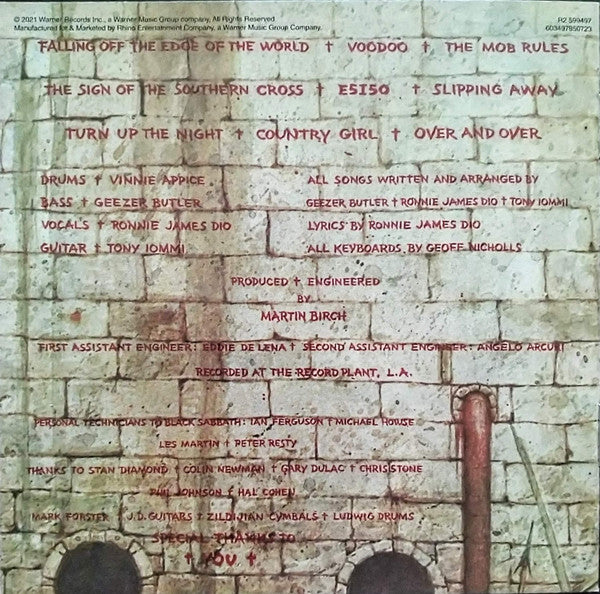 © 2021 Warner Records Inc., a Warner Music Group company, All Rights Reserved.
R2 599497
Manufactured for & Marketed by Rhino Entertainment Company, a Warner Music Group Company.
603497850723
FALLING OFF THE EDGE OF THE WORLD † VOODOO † THE MOB RULES
THE SIGN OF THE SOUTHERN CROSS † E5150 † SLIPPING AWAY
TURN UP THE NIGHT † COUNTRY GIRL † OVER AND OVER
DRUMS † VINNIE APPICE
ALL SONGS WRITTEN AND ARRANGED BY
BASS † GEEZER BUTLER
GEEZER BUTLER † RONNIE JAMES DIO † TONY IOMMI
VOCALS † RONNIE JAMES DIO
LYRICS BY RONNIE JAMES DIO
GUITAR † TONY IOMMI
ALL KEYBOARDS BY GEOFF NICHOLLS
PRODUCED † ENGINEERED
BY
MARTIN BIRCH
FIRST ASSISTANT ENGINEER: EDDIE DE LENA † SECOND ASSISTANT ENGINEER: ANGELO ARCURI
RECORDED AT THE RECORD PLANT, L.A.
PERSONAL TECHNICIANS TO BLACK SABBATH: IAN FERGUSON † MICHAEL HOWSE
LES MARTIN † PETER RESTY
THANKS TO STAN DIAMOND † COLIN NEWMAN † GARY DULAC † CHRIS STONE
PHIL JOHNSON † HAL COHEN
MARK FORSTER † J.D. GUITARS † ZILDJIAN CYMBALS † LUDWIG DRUMS
SPECIAL THANKS TO
† YOU †